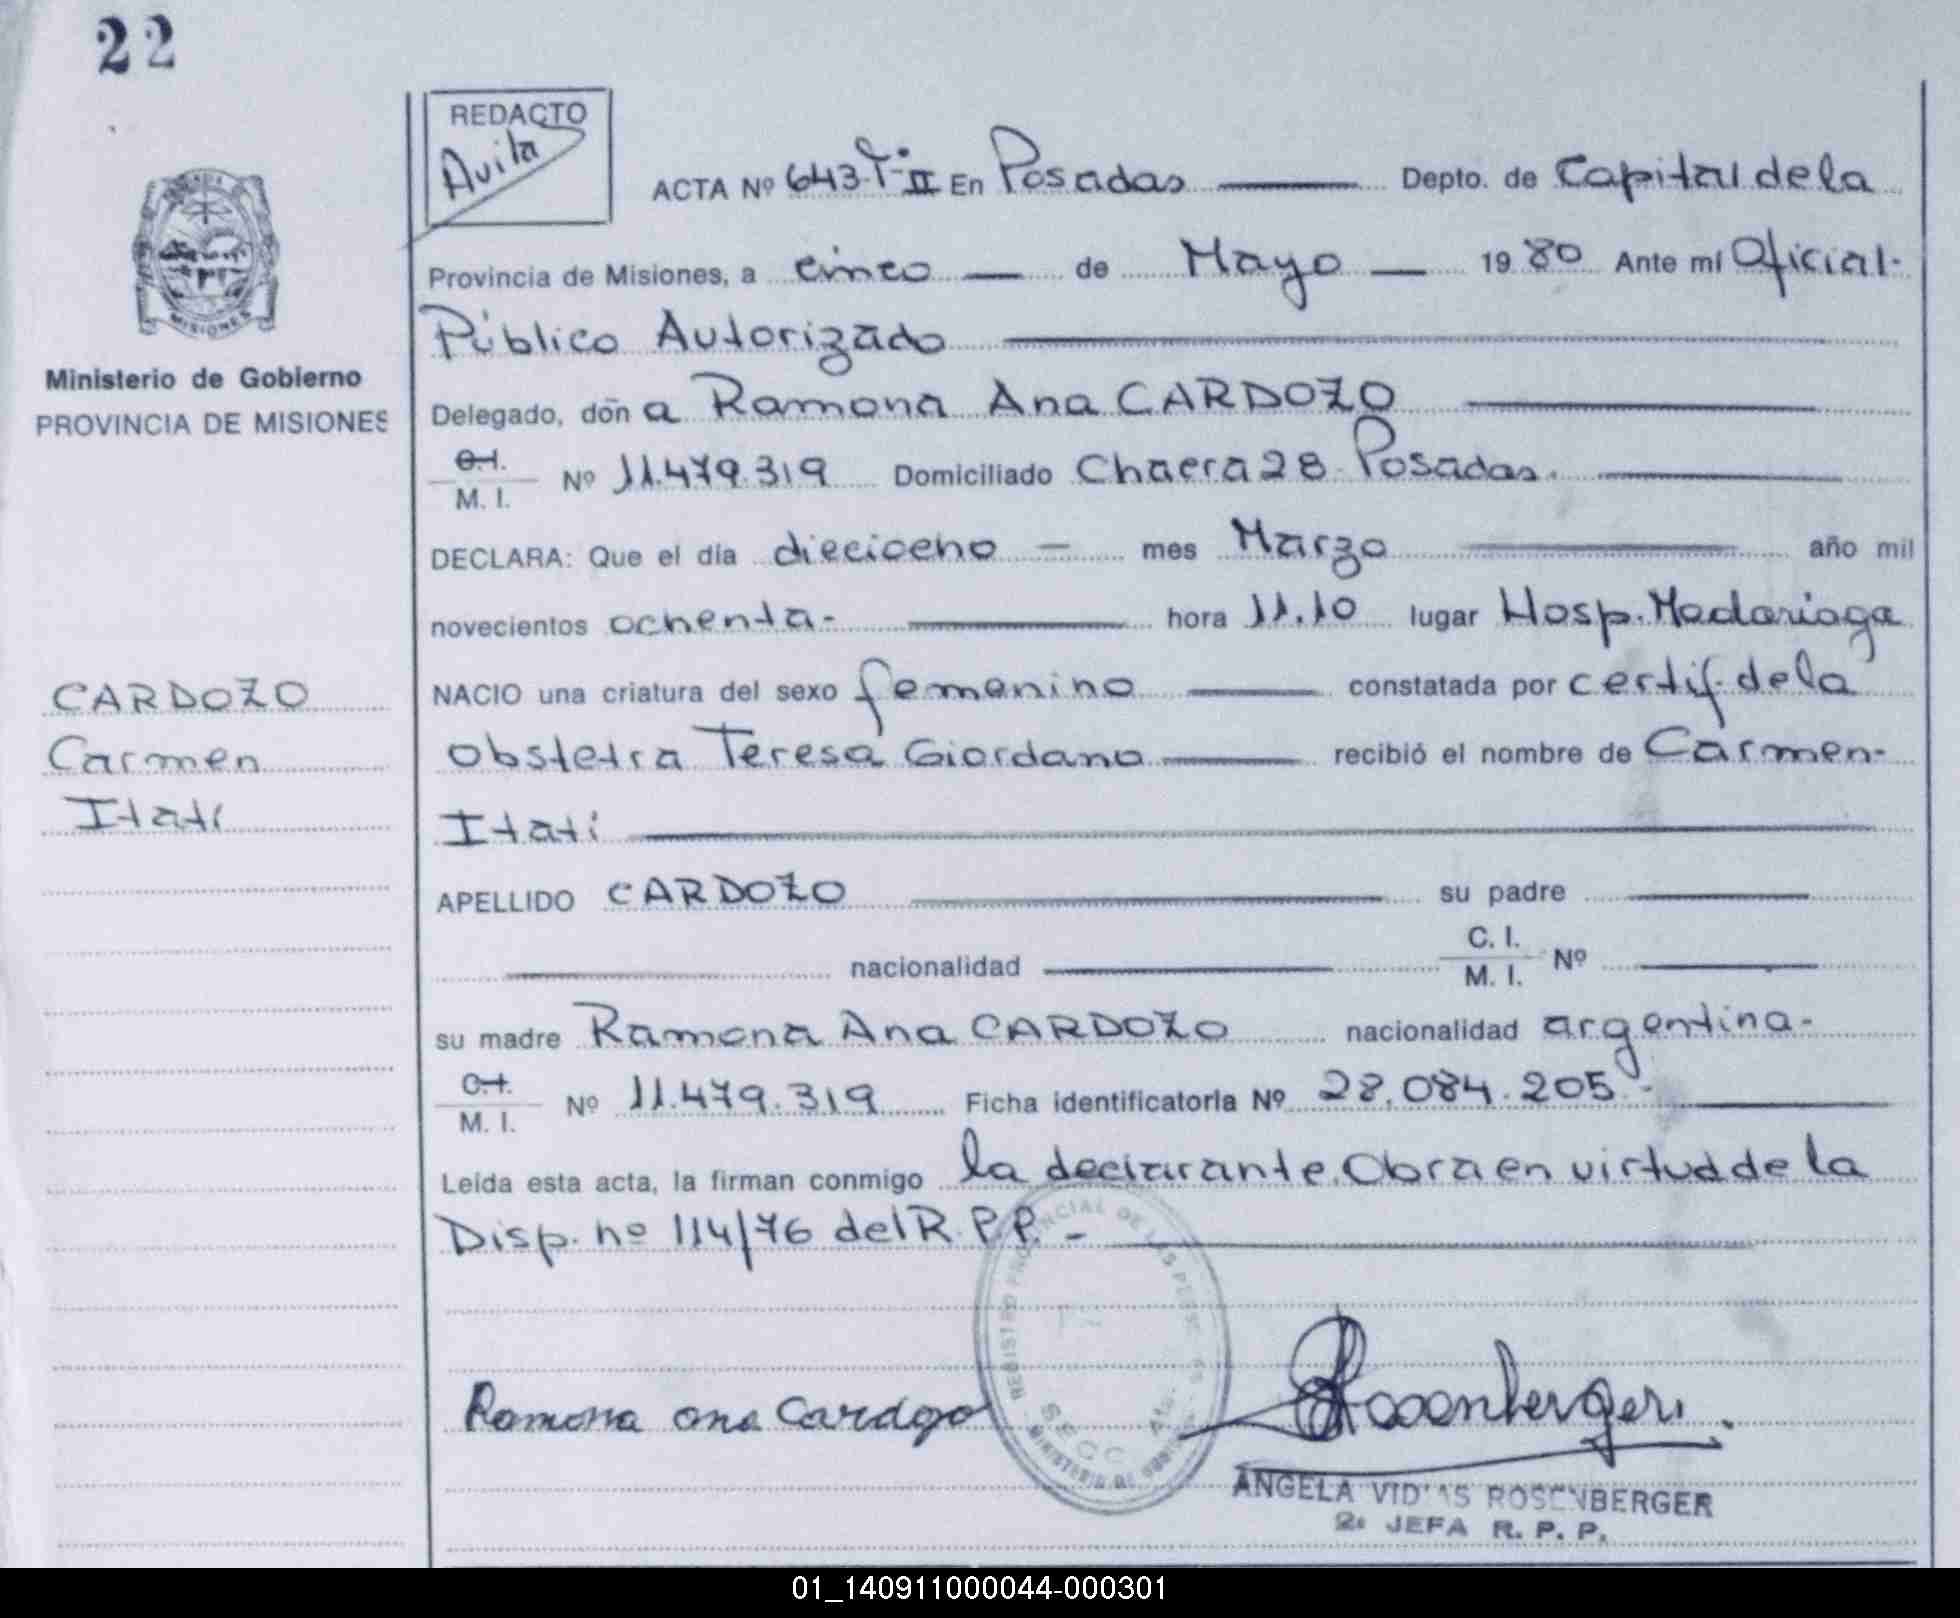 22
REDACTO
Avila
ACTA Nº 643 Tº II En Posadas Depto. de Capital de la
Provincia de Misiones, a cinco de Mayo 19 80 Ante mí Oficial-
Público Autorizado
Ministerio de Gobierno
PROVINCIA DE MISIONES
Delegado, don a Ramona Ana CARDOZO
C.I.
M. I. Nº 11.479.319 Domiciliado Chacra 28 Posadas.
DECLARA: Que el día dieciocho - mes Marzo año mil
novecientos ochenta- hora 11.10 lugar Hosp. Madariaga
CARDOZO
Carmen
Itatí
NACIO una criatura del sexo femenino constatada por certif. de la
obstetra Teresa Giordano recibió el nombre de Carmen-
Itatí
APELLIDO CARDOZO su padre
nacionalidad C. I.
M. I. Nº
su madre Ramona Ana CARDOZO nacionalidad argentina-
C.I.
M. I. Nº 11.479.319 Ficha identificatoria Nº 28.084.205.-
Leída esta acta, la firman conmigo la declarante. Obra en virtud de la
Disp. nº 114/76 del R.P.P. -
REGISTRO PROVINCIAL DE LAS PERS.
MINISTERIO DE
Ramona ana Cardozo
Rosenberger
ANGELA VID AS ROSENBERGER
2ª JEFA R. P. P.
01_140911000044-000301